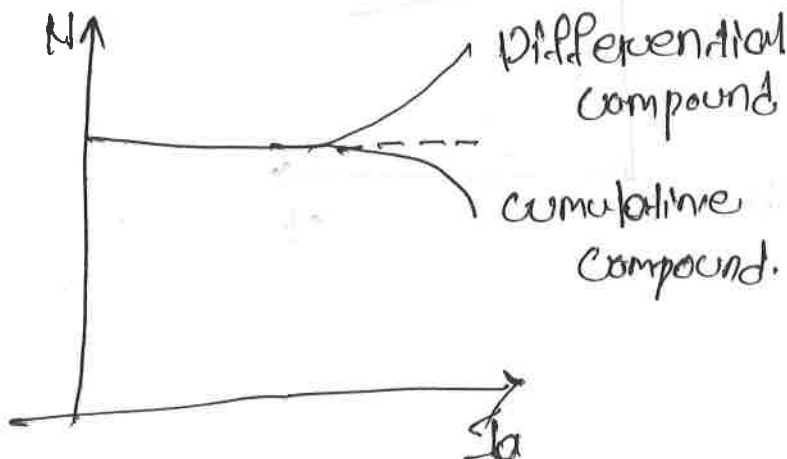 N
Differential
compound
cumulative
compound.
Ia